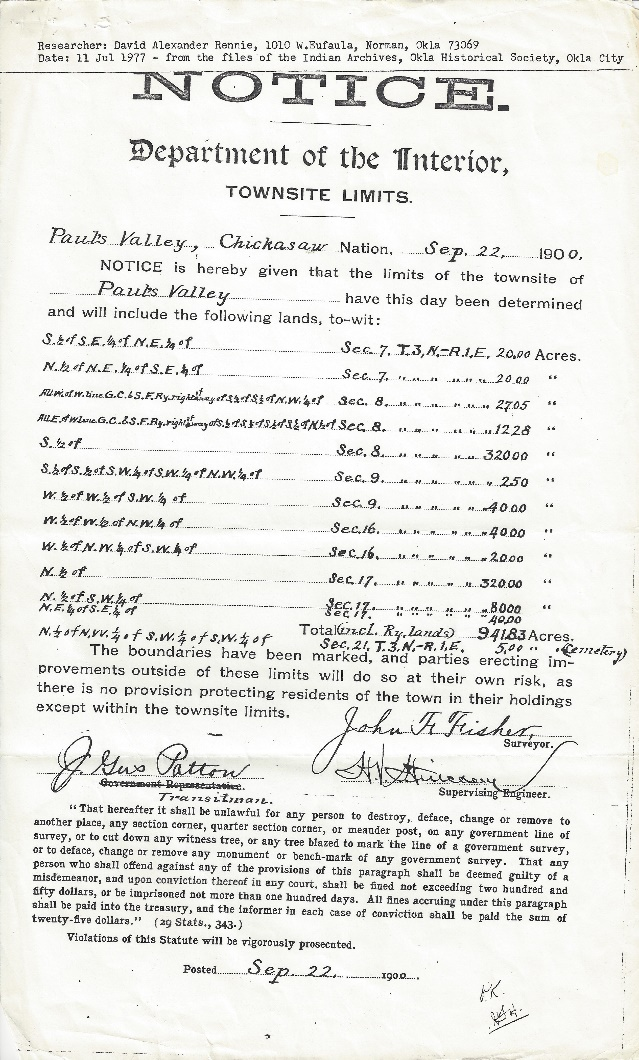 Researcher: David Alexander Rennie, 1010 W.Eufaula, Norman, Okla 73069
Date: 11 Jul 1977 - from the files of the Indian Archives, Okla Historical Society, Okla City
NOTICE.
Department of the Interior,
TOWNSITE LIMITS.
Pauls Valley, Chickasaw Nation, Sep. 22, 1900.
NOTICE is hereby given that the limits of the townsite of
Pauls Valley have this day been determined
and will include the following lands, to-wit:
S.½ of S.E.¼ of N.E.¼ of Sec. 7. T.3,N.-R.1E. 20.00 Acres.
N.½ of N.E.¼ of S.E.¼ of Sec. 7. " " " " 20.00 "
All W. of W. line G.C.&S.F.Ry. right of way of S.½ of S.½ of N.W.¼ of Sec. 8. " " " " 27.05 "
All E. of W. line G.C.&S.F.Ry. right of way of S.½ of S.½ of S.½ of N.½ of Sec. 8. " " " " 12.28 "
S.½ of Sec. 8. " " " " 320.00 "
S.½ of S.½ of S.W.¼ of S.W.¼ of N.W.¼ of Sec. 9. " " " " 2.50 "
W.½ of W.½ of S.W.¼ of Sec. 9. " " " " 40.00 "
W.½ of W.½ of N.W.¼ of Sec. 16. " " " " 40.00 "
W.½ of N.W.¼ of S.W.¼ of Sec. 16. " " " " 20.00 "
N.½ of Sec. 17. " " " " 320.00 "
N.½ of S.W.¼ of Sec. 17. " " " " 80.00 "
N.E.¼ of S.E.¼ of Sec. 17. 40.00
Total (incl. Ry. lands) 941.83 Acres.
N.½ of N.W.¼ of S.W.¼ of S.W.¼ of Sec. 21, T.3,N.-R.1E. 5.00 " (Cemetery)
The boundaries have been marked, and parties erecting im-
provements outside of these limits will do so at their own risk, as
there is no provision protecting residents of the town in their holdings
except within the townsite limits.
John F. Fisher,
Surveyor.
J. Gus Patton
Government Representative.
Transitman.
Supervising Engineer.
"That hereafter it shall be unlawful for any person to destroy, deface, change or remove to
another place, any section corner, quarter section corner, or meander post, on any government line of
survey, or to cut down any witness tree, or any tree blazed to mark the line of a government survey,
or to deface, change or remove any monument or bench-mark of any government survey. That any
person who shall offend against any of the provisions of this paragraph shall be deemed guilty of a
misdemeanor, and upon conviction thereof in any court, shall be fined not exceeding two hundred and
fifty dollars, or be imprisoned not more than one hundred days. All fines accruing under this paragraph
shall be paid into the treasury, and the informer in each case of conviction shall be paid the sum of
twenty-five dollars." (29 Stats., 343.)
Violations of this Statute will be vigorously prosecuted.
Posted Sep. 22, 1900.